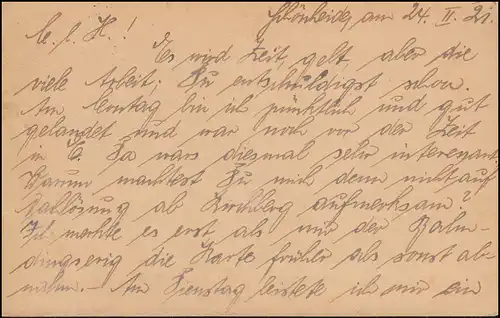 Schönheide, am 24. II. 21.
M. l. H.!
Es wird Zeit, gelt, aber die
viele Arbeit; Du entschuldigst schon.
Am Sonntag bin ich pünktlich und gut
gelandet und war noch vor der Zeit
in C. Da wars diesmal sehr interessant.
Warum machtest Du mich denn nicht auf
ablösung ab Kirchberg aufmerksam?
Ich merkte es erst als mir der Bahn-
die Karte früher als sonst ab-
nahm. – Am Dienstag leistete ich mir ein